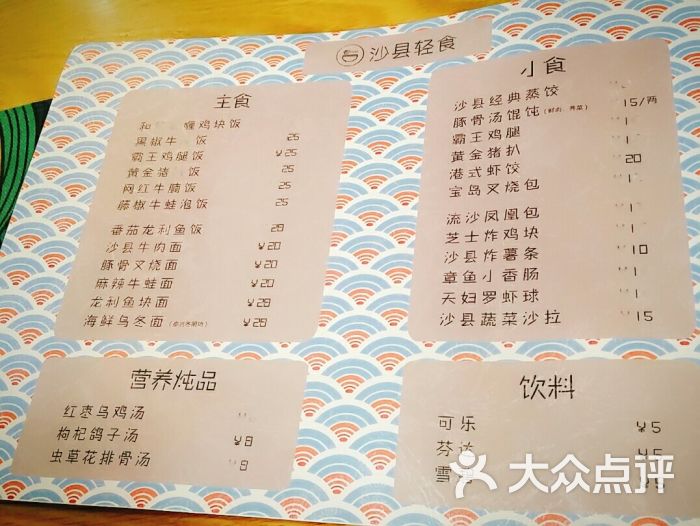 沙县轻食
主食
和 喱鸡块饭
黑椒牛 饭 25
霸王鸡腿饭 ¥25
黄金猪 饭 25
网红牛腩饭 25
藤椒牛蛙泡饭 25
番茄龙利鱼饭 28
沙县牛肉面 ¥20
豚骨叉烧面 ¥20
麻辣牛蛙面 ¥28
龙利鱼块面 ¥28
海鲜乌冬面 ¥28
小食
沙县经典蒸饺
豚骨汤馄饨(鲜肉、荠菜) 15/两
霸王鸡腿
黄金猪扒
港式虾饺 ¥20
宝岛叉烧包
流沙凤凰包
芝士炸鸡块
沙县炸薯条 ¥10
章鱼小香肠
天妇罗虾球
沙县蔬菜沙拉 ¥15
营养炖品
红枣乌鸡汤
枸杞鸽子汤 ¥8
虫草花排骨汤 ¥8
饮料
可乐 ¥5
芬达 ¥5
雪
大众点评